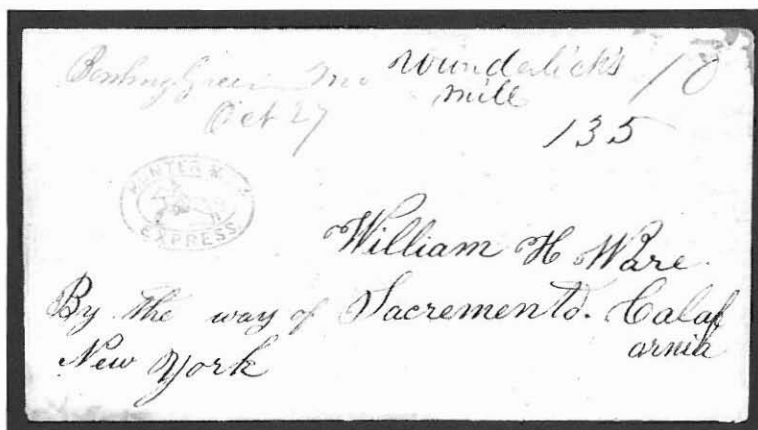 Bowling Green Mo
Oct 27
Wunderlick's
Mill
10
135
HUNTER &
EXPRESS
William H Ware
By the way of Sacremento. Calaf
New York
arnia